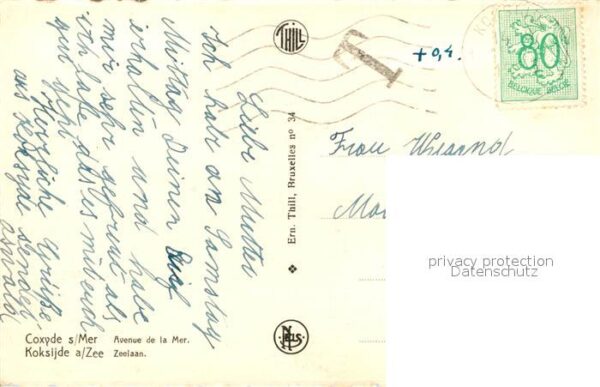 Liebe Mutter
Ich habe am Samstag
Mittag Deinen Brief
erhalten und habe
mir sehr gefreut als
ich habe alles
gen
Herzliche Grüße
aus Koksyde sendet
Oswald
Coxyde s/Mer Avenue de la Mer.
Koksijde a/Zee Zeelaan.
THILL
Ern. Thill, Bruxelles nº 34
NELS
T
+0,4.
KO
80
BELGIQUE-BELGIE
Frau Wiegand
privacy protection
Datenschutz